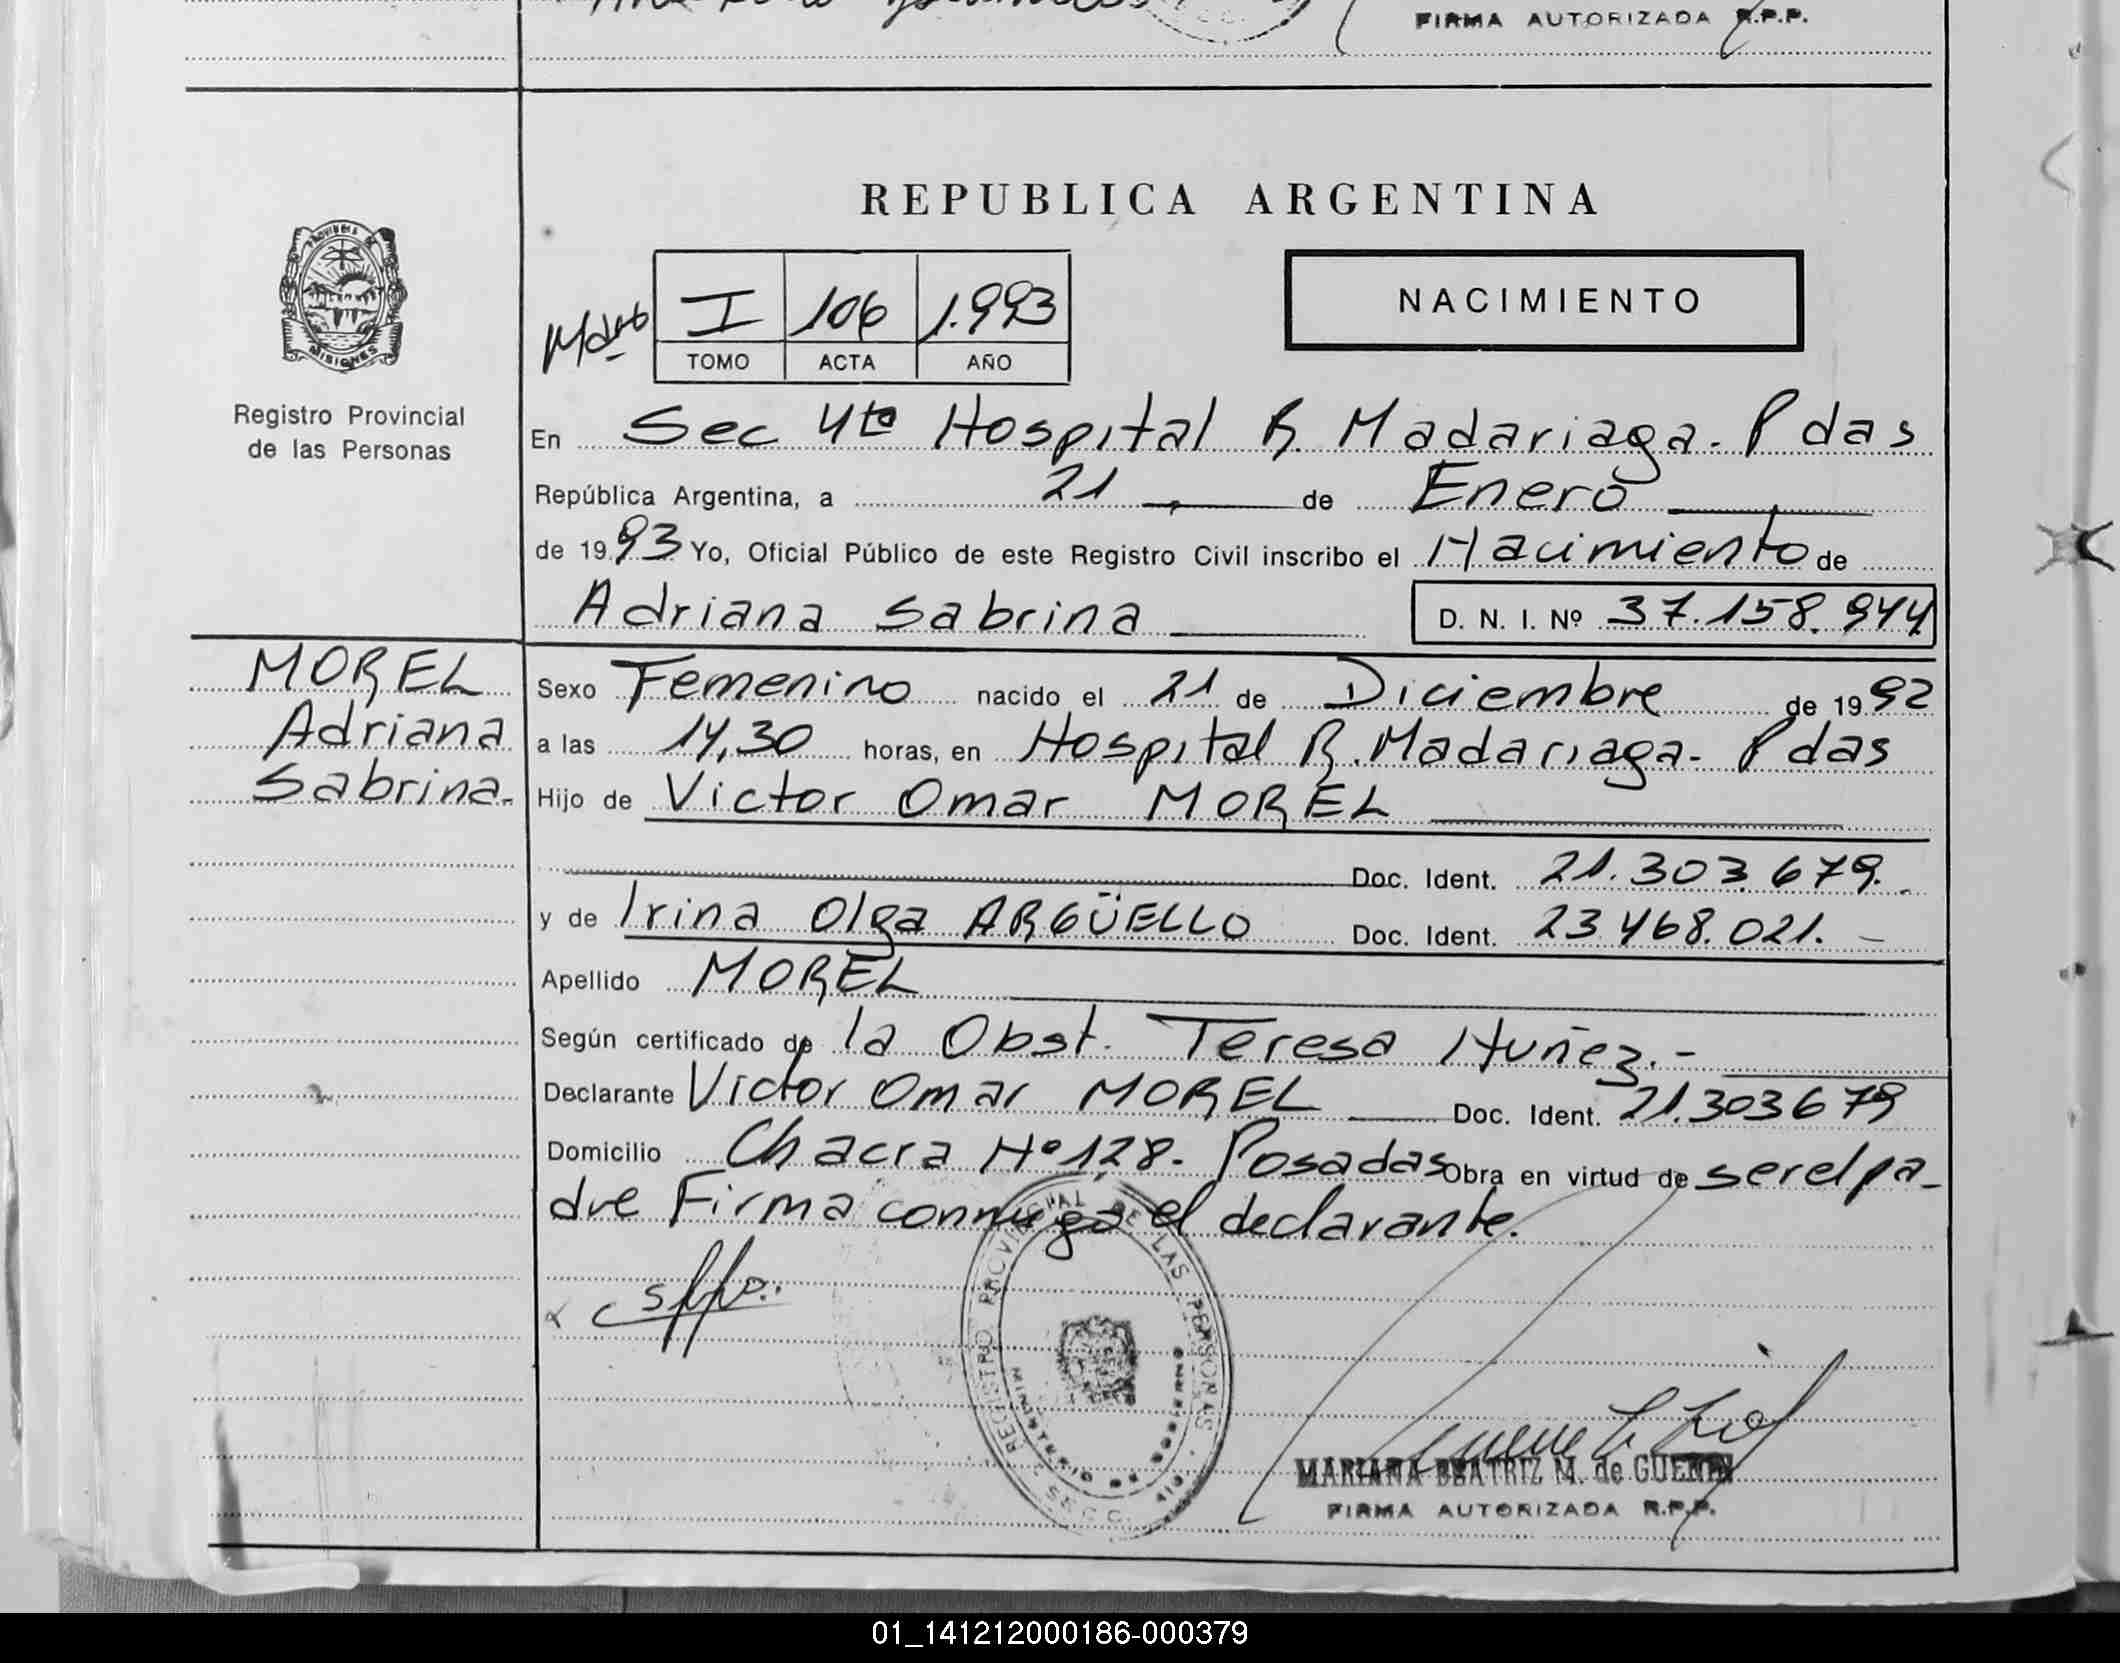 FIRMA AUTORIZADA R.P.P.
REPUBLICA ARGENTINA
PROVINCIA DE
MISIONES
Registro Provincial
de las Personas
I 106 1.993
TOMO ACTA AÑO
NACIMIENTO
En Sec 4ta Hospital R. Madariaga - Pdas
República Argentina, a 21 de Enero
de 1993 Yo, Oficial Público de este Registro Civil inscribo el Nacimiento de
Adriana Sabrina D. N. I. Nº 37.158.944
MOREL
Adriana
Sabrina.-
Sexo Femenino nacido el 21 de Diciembre de 1992
a las 14,30 horas, en Hospital R. Madariaga - Pdas
Hijo de Victor Omar MOREL
Doc. Ident. 21.303.679.-
y de Irina Olga ARGÜELLO Doc. Ident. 23.468.021.-
Apellido MOREL
Según certificado de la Obst. Teresa Nuñez.-
Declarante Victor Omar MOREL Doc. Ident. 21.303679
Domicilio Chacra Nº 128. Posadas Obra en virtud de ser el pa-
dre Firma conmigo el declarante.
REGISTRO PROVINCIAL DE LAS PERSONAS
MINISTERIO DE GOBIERNO
MARIANA BEATRIZ M. de
FIRMA AUTORIZADA R.P.P.
01_141212000186-000379